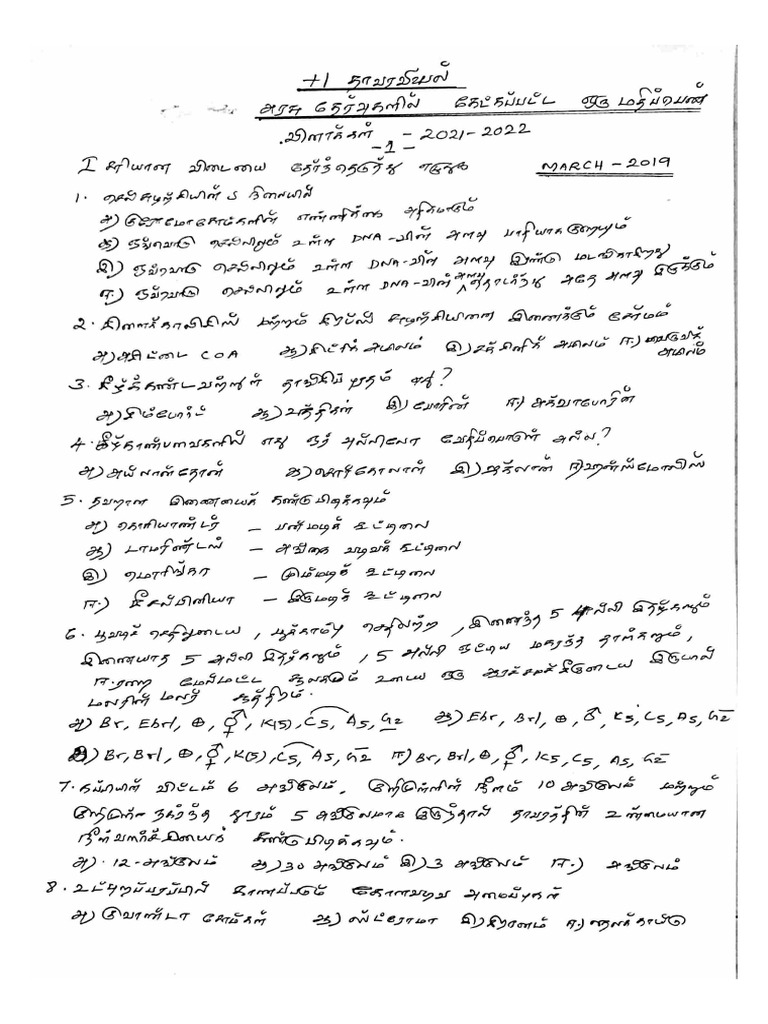 +1 தாவரவியல்
அரசு தேர்வுகளில் கேட்கப்பட்ட ஒரு மதிப்பெண்
வினாக்கள் - 2021-2022
-1-
I சரியான விடையை தேர்ந்தெடுத்து எழுதுக MARCH - 2019
1. செல் சுழற்சியின் S நிலையில்
அ) குரோமோசோம்களின் எண்ணிக்கை அதிகமாகும்
ஆ) ஒவ்வொரு செல்லிலும் உள்ள DNA-வின் அளவு பாதியாக குறையும்
இ) ஒவ்வொரு செல்லிலும் உள்ள DNA-வின் அளவு இரண்டு மடங்காகிறது
ஈ) ஒவ்வொரு செல்லிலும் உள்ள DNA-வின் அளவு தொடர்ந்து அதே அளவு இருக்கும்
2. கிளைக்காலிசிஸ் மற்றும் கிரப்ஸ் சுழற்சியினை இணைக்கும் சேர்மம்
அ) அசிட்டை COA ஆ) சிட்ரிக் அமிலம் இ) சக்சினிக் அமிலம் ஈ) பைருவிக் அமிலம்
3. கீழ்க்கண்டவற்றுள் தாங்கிப் புரதம் எது?
அ) சிம்போர்ட் ஆ) வக்திகள் இ) போரின் ஈ) அக்வாபோரின்
4. கீழ்காண்பவைகளில் எது ஓர் அல்லிலோ வேதிப்பொருள் அல்ல?
அ) அய்லான்தோன் ஆ) சொர்கோலான் இ) ஜக்லான் ஈ) ஹன்ஸ்மோலிஸ்
5. தவறான இணையைக் கண்டுபிடிக்கவும்
அ) கொரியாண்டர் - பன்மடிக் கூட்டிலை
ஆ) டாமரிண்டஸ் - அங்கை வடிவக் கூட்டிலை
இ) மொரிங்கா - மும்மடிக் கூட்டிலை
ஈ) சீசல்பினியா - இருமடிக் கூட்டிலை
6. பூவடிச் செதிலுடைய, பூக்காம்பு செதிலற்ற, இணைந்த 5 புல்லி இதழ்களும்
இணையாத 5 அல்லி இதழ்களும், 5 அல்லி ஒட்டிய மகரந்த தாள்களும்,
ஈரறை மேல்மட்ட சூலகமும் உடைய ஒரு ஆரச்சமச்சீருடைய இருபால்
மலரின் மலர் சூத்திரம்.
அ) Br, Ebrl, ⊕, ⚥, K(5), C5, A5, G2 ஆ) Ebr, Brl, ⊕, ♂, K5, C5, A5, G2
இ) Br, Brl, ⊕, ⚥, K(5), C5, A5, G2 ஈ) Br, Brl, ⊕, ⚥, K5, C5, A5, G2
7. கப்பியின் விட்டம் 6 அங்குலம், குறிமுள்ளின் நீளம் 10 அங்குலம் மற்றும்
குறிமுள் நகர்ந்த தூரம் 5 அங்குலமாக இருந்தால் தாவரத்தின் உண்மையான
நீள்வளர்ச்சியைக் கண்டுபிடிக்கவும்.
அ) 12-அங்குலம் ஆ) 30 அங்குலம் இ) 3 அங்குலம் ஈ) அங்குலம்
8. உட்புறப்பரப்பில் காணப்படும் கோளவடிவ அமைப்புகள்
அ) குவாண்டா சோம்கள் ஆ) ஸ்ட்ரோமா இ) கிரானம் ஈ) தைலக்காய்டு